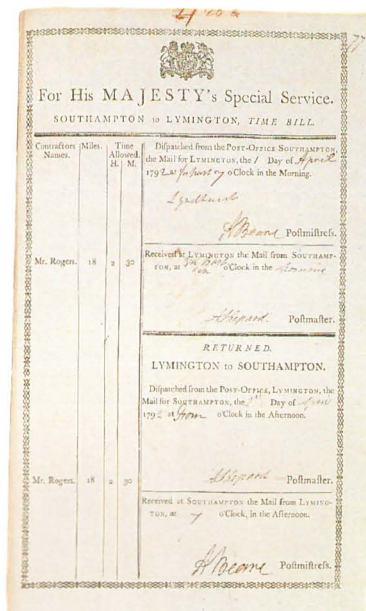 77
For His MAJESTY's Special Service.
SOUTHAMPTON to LYMINGTON, TIME BILL.
Contractors Names.
Miles.
Time Allowed. H. M.
Dispatched from the POST-OFFICE SOUTHAMPTON,
the Mail for LYMINGTON, the 1 Day of April
1792 at past 7 o'Clock in the Morning.
Lyndhurst
Postmistress.
Received at LYMINGTON the Mail from SOUTHAMP-
Mr. Rogers. 18 2 30
TON, at o'Clock in the
Postmaster.
RETURNED.
LYMINGTON to SOUTHAMPTON.
Dispatched from the POST-OFFICE, LYMINGTON, the
Mail for SOUTHAMPTON, the 1st Day of April
1792 at o'Clock in the Afternoon.
Mr. Rogers. 18 2 30
Postmaster.
Received at SOUTHAMPTON the Mail from LYMING-
TON, at 7 o'Clock, in the Afternoon.
Postmistress.